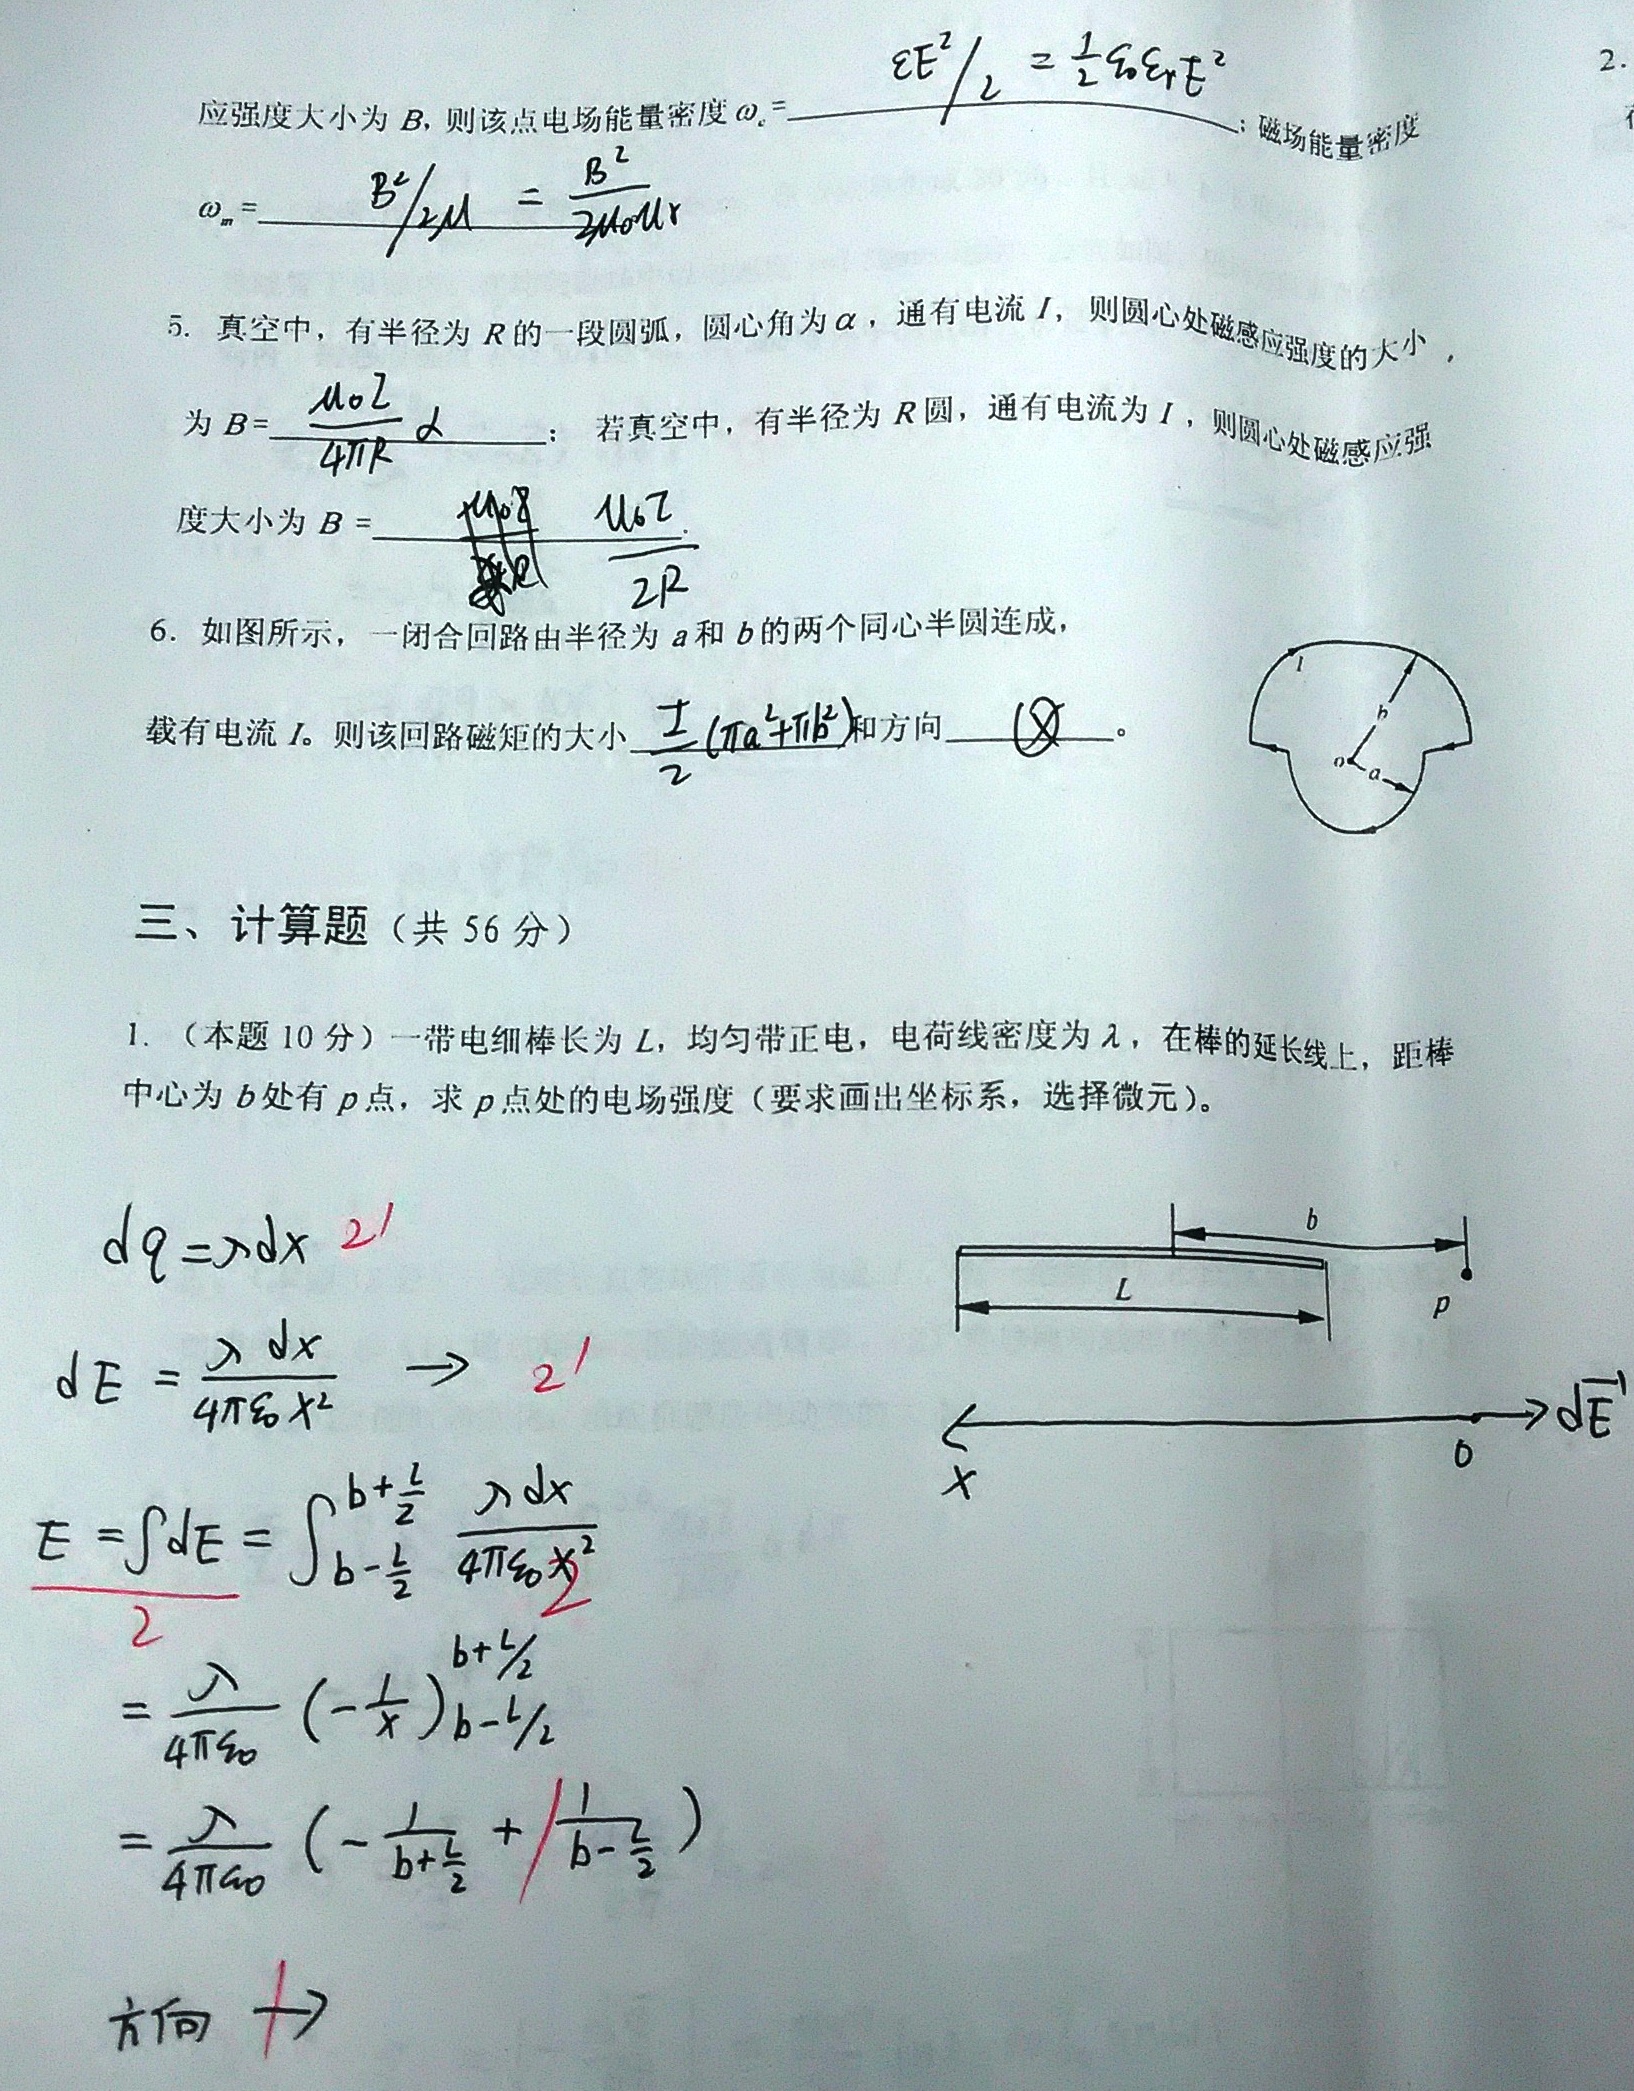 εE²/2 = 1/2 ε₀εᵣE²
2.
应强度大小为 B, 则该点电场能量密度 ωₑ= ; 磁场能量密度
ωₘ= B²/2μ = B²/2μ₀μᵣ
5. 真空中，有半径为 R 的一段圆弧，圆心角为 α，通有电流 I，则圆心处磁感应强度的大小，
为 B= μ₀I/4πR α ； 若真空中，有半径为 R 圆，通有电流为 I，则圆心处磁感应强
度大小为 B = μ₀I/2R .
6. 如图所示，一闭合回路由半径为 a 和 b 的两个同心半圆连成，
载有电流 I。则该回路磁矩的大小 I/2 (πa²+πb²) 和方向 ⊗ 。
I
b
o
a
三、计算题（共 56 分）
1. （本题 10 分）一带电细棒长为 L，均匀带正电，电荷线密度为 λ，在棒的延长线上，距棒
中心为 b 处有 p 点，求 p 点处的电场强度（要求画出坐标系，选择微元）。
dq = λdx 2'
b
L
p
dE = λdx/4πε₀x² → 2'
dE
x
0
E = ∫dE = ∫_{b-L/2}^{b+L/2} λdx/4πε₀x²
2 2
= λ/4πε₀ (-1/x)_{b-L/2}^{b+L/2}
= λ/4πε₀ (-1/(b+L/2) + 1/(b-L/2))
方向 →